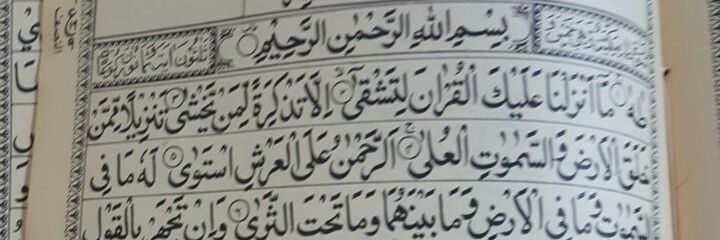 بِسْمِ اللهِ الرَّحْمٰنِ الرَّحِيْمِ
طٰهٰ ۚ‏﴿۱﴾ مَاۤ اَنْزَلْنَا عَلَيْكَ الْقُرْاٰنَ لِتَشْقٰٓى ۙ‏﴿۲﴾ اِلَّا تَذْكِرَةً لِّمَنْ يَّخْشٰى ۙ‏﴿۳﴾ تَنْزِيْلًا مِّمَّنْ
خَلَقَ الْاَرْضَ وَالسَّمٰوٰتِ الْعُلٰى ؕ‏﴿۴﴾ اَلرَّحْمٰنُ عَلَى الْعَرْشِ اسْتَوٰى ‏﴿۵﴾ لَهٗ مَا فِى
السَّمٰوٰتِ وَمَا فِى الْاَرْضِ وَمَا بَيْنَهُمَا وَمَا تَحْتَ الثَّرٰى ‏﴿۶﴾ وَاِنْ تَجْهَرْ بِالْقَوْلِ